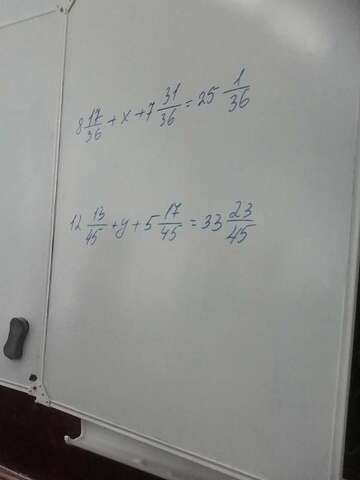 8 17/36 + x + 7 31/36 = 25 1/36
12 13/45 + y + 5 17/45 = 33 23/45